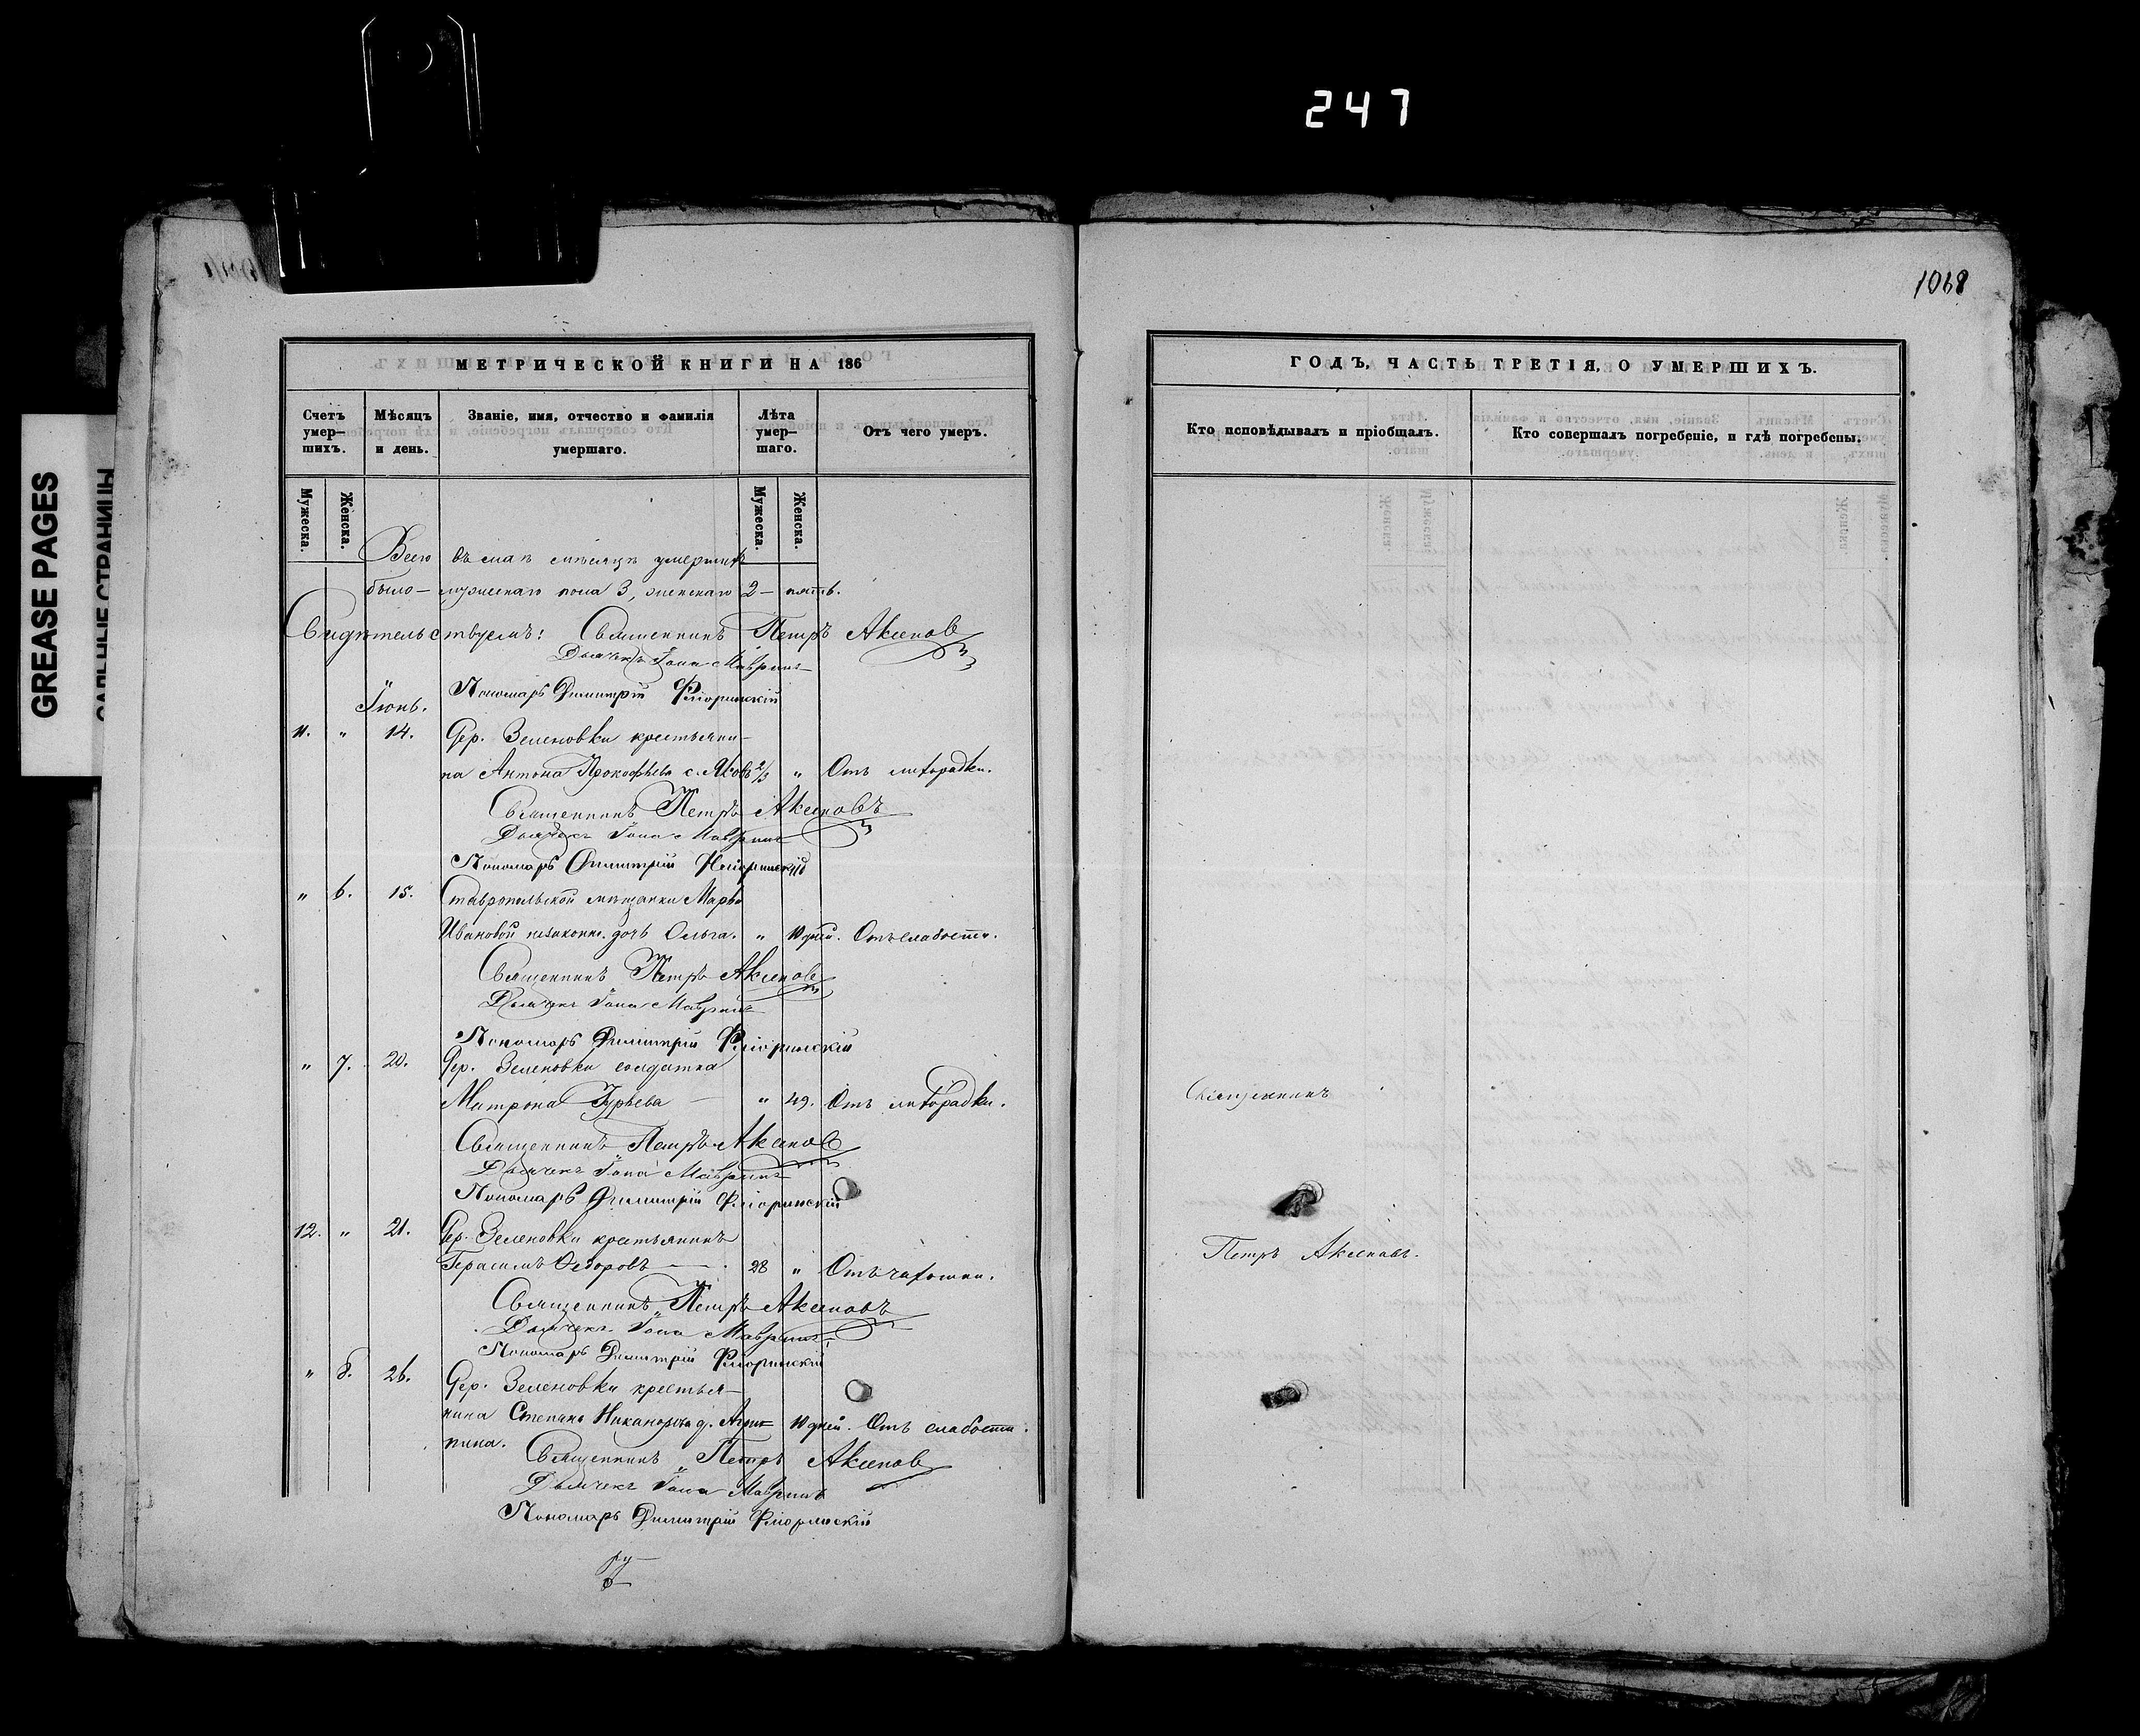 247
1068
GREASE PAGES
САЛЬНЫЕ СТРАНИЦЫ
МЕТРИЧЕСКОЙ КНИГИ НА 186
Счетъ умер-шихъ.
Мѣсяцъ и день.
Званіе, имя, отчество и фамилія умершаго.
Лѣта умер-шаго.
Отъ чего умеръ.
Мужеска.
Женска.
Мужеска.
Женска.
Всего въ маѣ мѣсяцѣ умершихъ
было — мужескаго пола 3, женскаго 2 — пять.
Свидѣтельствуемъ: Священникъ Петръ Аксеновъ
Дьячекъ Іона Мавринъ
Пономарь Димитрій Флоринскій
Іюнь.
11. " 14. Дер. Зеленовки крестьяни-
на Антона Прокофьева с. Яковъ 2/3 " Отъ лихорадки.
Священникъ Петръ Аксеновъ
Дьячекъ Іона Мавринъ
Пономарь Димитрій Флоринскій
" 6. 15. Ставропольской мѣщанки Марьи
Ивановой незаконн. дочь Ольга. " 10 дней. Отъ слабости.
Священникъ Петръ Аксеновъ
Дьячекъ Іона Мавринъ
Пономарь Димитрій Флоринскій
" 7. 20. Дер. Зеленовки солдатка
Матрона Гурьева — " 49. Отъ лихорадки.
Священникъ Петръ Аксеновъ
Дьячекъ Іона Мавринъ
Пономарь Димитрій Флоринскій
12. " 21. Дер. Зеленовки крестьянинъ
Герасимъ Ѳедоровъ — 28 " Отъ чахотки.
Священникъ Петръ Аксеновъ
Дьячекъ Іона Мавринъ
Пономарь Димитрій Флоринскій
" 8. 26. Дер. Зеленовки крестья-
нина Степана Никанорова д. Агрип- 10 дней. Отъ слабости.
пина.
Священникъ Петръ Аксеновъ
Дьячекъ Іона Мавринъ
Пономарь Димитрій Флоринскій
ГОДЪ, ЧАСТЬ ТРЕТІЯ, О УМЕРШИХЪ.
Кто исповѣдывалъ и пріобщалъ.
Кто совершалъ погребеніе, и гдѣ погребены.
Священникъ
Петръ Аксеновъ.